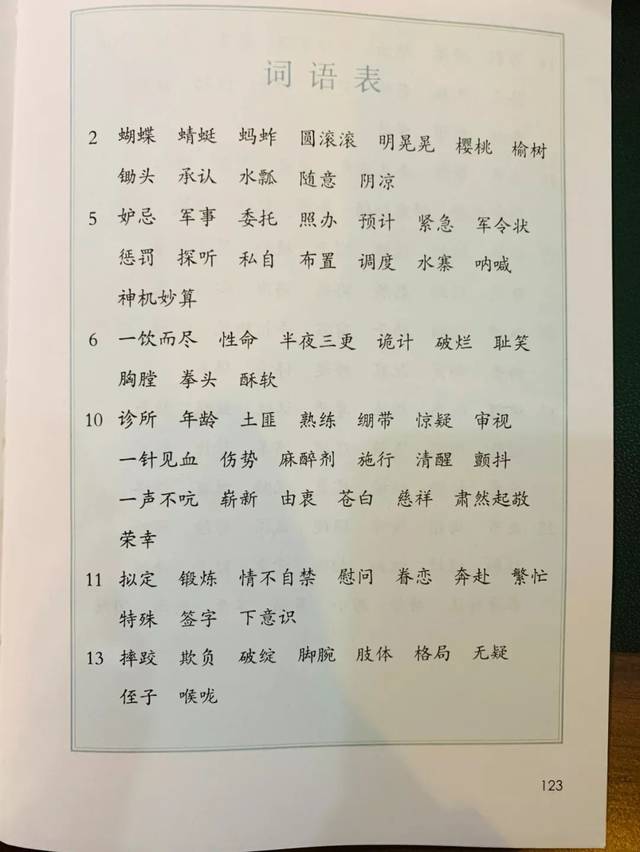 词语表
2 蝴蝶 蜻蜓 蚂蚱 圆滚滚 明晃晃 樱桃 榆树
锄头 承认 水瓢 随意 阴凉
5 妒忌 军事 委托 照办 预计 紧急 军令状
惩罚 探听 私自 布置 调度 水寨 呐喊
神机妙算
6 一饮而尽 性命 半夜三更 诡计 破烂 耻笑
胸膛 拳头 酥软
10 诊所 年龄 土匪 熟练 绷带 惊疑 审视
一针见血 伤势 麻醉剂 施行 清醒 颤抖
一声不吭 崭新 由衷 苍白 慈祥 肃然起敬
荣幸
11 拟定 锻炼 情不自禁 慰问 眷恋 奔赴 繁忙
特殊 签字 下意识
13 摔跤 欺负 破绽 脚腕 肢体 格局 无疑
侄子 喉咙
123